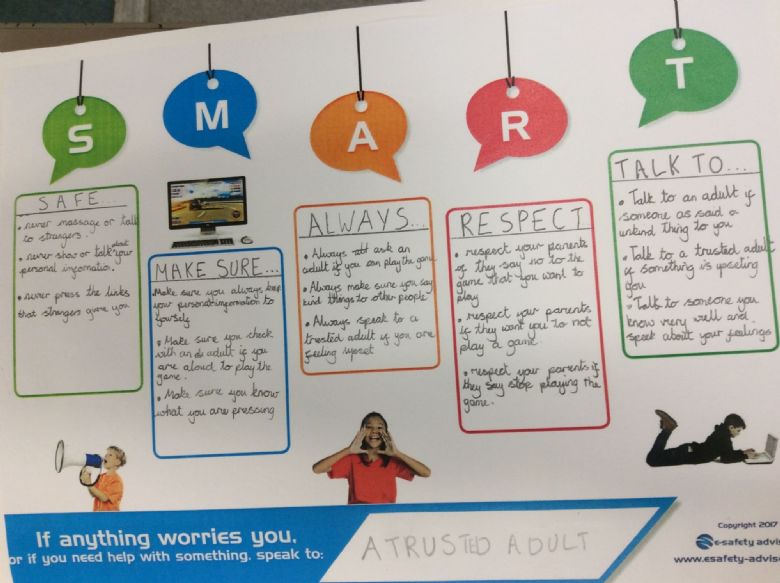 S
M
A
R
T
SAFE...
• never massage or talk
to strangers.
• never show or talk about your
personal information.
• never press the links
that strangers give you
MAKE SURE...
Make sure you always keep
your personal information to
yourself
• Make sure you check
with an adult if you
are aloud to play the
game.
• Make sure you know
what you are pressing
ALWAYS...
• Always ask an
adult if you can play the game
• Always make sure you say
kind things to other people
• Always speak to a
trusted adult if you are
feeling upset
RESPECT
• respect your parents
if they say no to the
game that you want to
play
• respect your parents
if they want you to not
play a game.
• respect your parents if
they say stop playing the
game.
TALK TO...
• Talk to an adult if
someone as said a
unkind thing to you
• Talk to a trusted adult
if something is upseting
you
• Talk to someone you
know very well and
speak about your feelings
If anything worries you,
or if you need help with something, speak to:
A TRUSTED ADULT
Copyright 2017
e-safety advis
www.esafety-advise